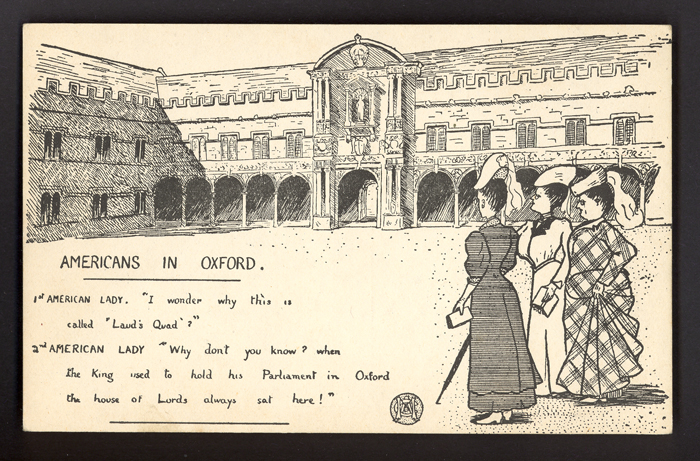 AMERICANS IN OXFORD.
1st AMERICAN LADY. "I wonder why this is
called "Laud's Quad"?"
2nd AMERICAN LADY "Why don't you know? when
the King used to hold his Parliament in Oxford
the house of Lords always sat here!"